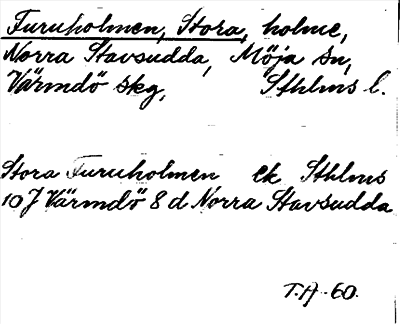 Furuholmen, Stora, holme,
Norra Stavsudda, Möja sn,
Värmdö skg, Sthlms l.
Stora Furuholmen ek Sthlms
10 J Värmdö 8 d Norra Stavsudda
T.A. -60.